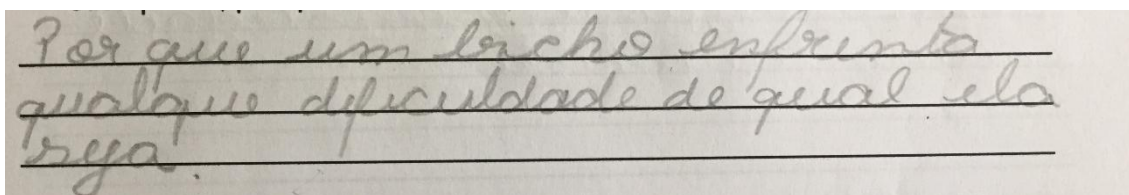 Por que um bicho enfrenta
qualque dificuldade de qual ela
seja.